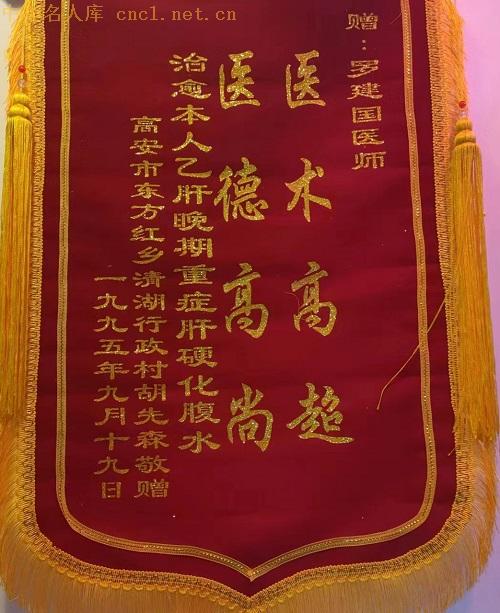 中国名人库 cnc1.net.cn
赠：罗建国医师
医术高超
医德高尚
治愈本人乙肝晚期重症肝硬化腹水
高安市东方红乡清湖行政村胡先森敬赠
一九九五年九月十九日